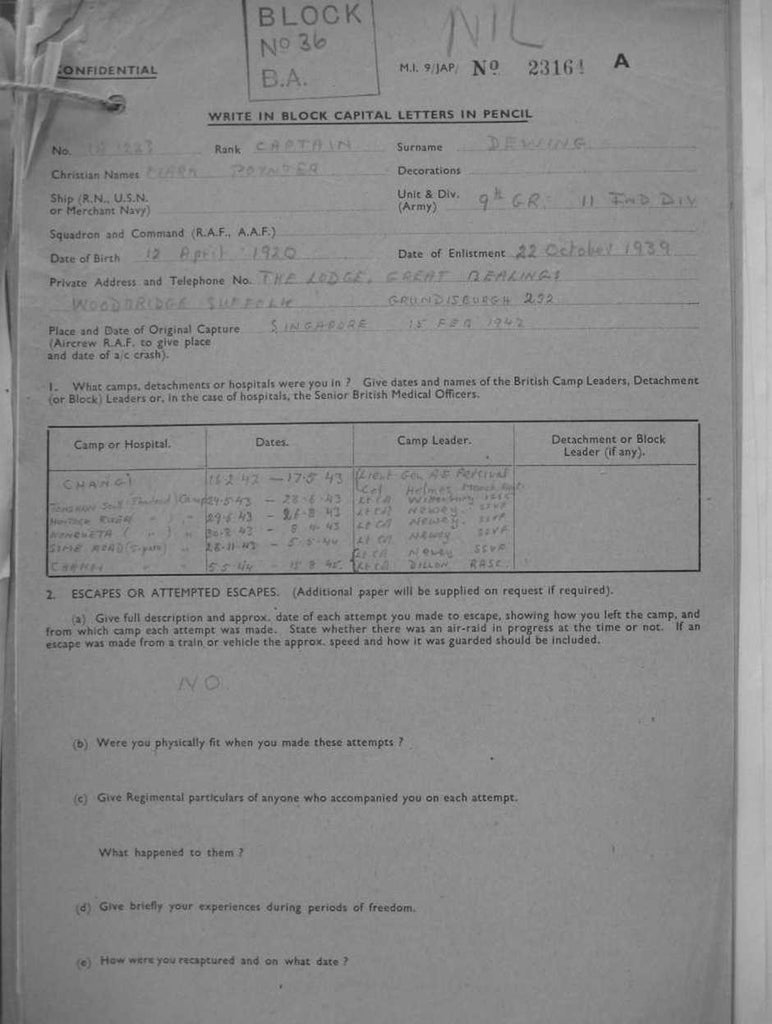 BLOCK
Nº 36
B.A.
NIL
CONFIDENTIAL
M.I. 9/JAP/ Nº 23161 A
WRITE IN BLOCK CAPITAL LETTERS IN PENCIL
No. Rank CAPTAIN Surname DEWING
Christian Names POYNTER Decorations
Ship (R.N., U.S.N.
or Merchant Navy)
Unit & Div.
(Army) 9th GR. 11 IND DIV
Squadron and Command (R.A.F., A.A.F.)
Date of Birth 12 April 1920 Date of Enlistment 22 October 1939
Private Address and Telephone No. THE LODGE, GREAT BEALINGS
WOODBRIDGE SUFFOLK GRUNDISBURGH 292
Place and Date of Original Capture SINGAPORE 15 FEB 1942
(Aircrew R.A.F. to give place
and date of a/c crash).
1. What camps, detachments or hospitals were you in ? Give dates and names of the British Camp Leaders, Detachment
(or Block) Leaders or, in the case of hospitals, the Senior British Medical Officers.
Camp or Hospital. Dates. Camp Leader. Detachment or Block
Leader (if any).
CHANGI 2 42 — 17.5 43 Lieut Gen AE Percival
Col Holmes
29.5 43 — 28.6.43 Lt Col
RIVER 29.6.43 — 26.8 43 Lt Col Newey SSVF
30.8 43 — 43 Lt Col Newey SSVF
SIME ROAD 28.11.43 — 5.5.44 Lt Col Newey SSVF
CHANGI 5 5 44 — 15 8 45 Lt Col DILLON RASC
2. ESCAPES OR ATTEMPTED ESCAPES. (Additional paper will be supplied on request if required).
(a) Give full description and approx. date of each attempt you made to escape, showing how you left the camp, and
from which camp each attempt was made. State whether there was an air-raid in progress at the time or not. If an
escape was made from a train or vehicle the approx. speed and how it was guarded should be included.
NO.
(b) Were you physically fit when you made these attempts ?
(c) Give Regimental particulars of anyone who accompanied you on each attempt.
What happened to them ?
(d) Give briefly your experiences during periods of freedom.
(e) How were you recaptured and on what date ?